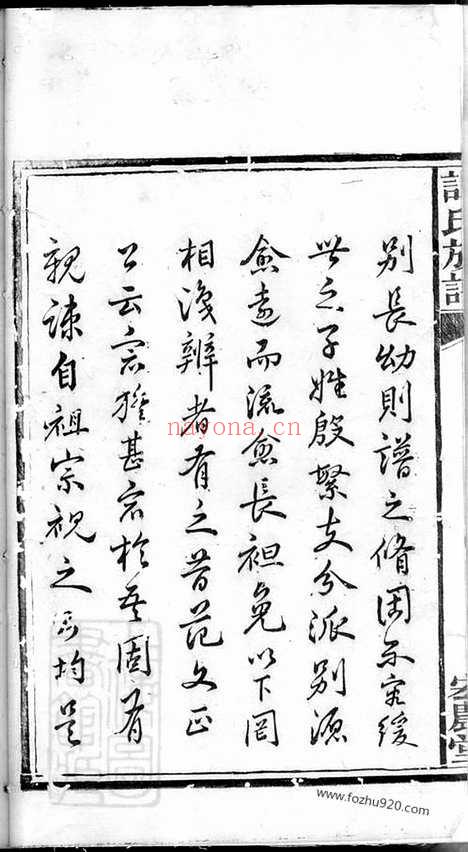 氏族譜
別長幼則譜之脩固不容緩
世之子姓殷繁支分派別源
愈遠而流愈長袒免以下罔
相淺辨者有之昔范文正
公云宗族甚衆於吾固有
親疎自祖宗視之則均是
農堂
nayona.cn
www.fozhu920.com